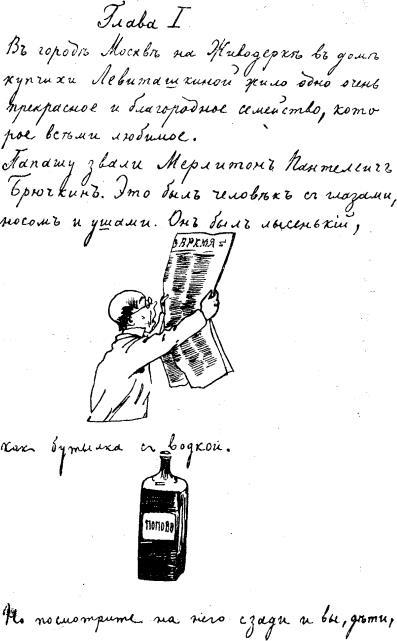 Глава I
Въ городѣ Москвѣ на Живодеркѣ въ домѣ
купчихи Левиташкиной жило одно очень
прекрасное и благородное семейство, кото
рое всѣми любимое.
Папашу звали Мерлитонъ Пантелеичъ
Брючкинъ. Это былъ человѣкъ съ глазами,
носомъ и ушами. Онъ былъ лысенькій,
ВРЕМЯ
какъ бутылка съ водкой.
ПОПОВА
Но посмотрите на него сзади и вы, дѣти,